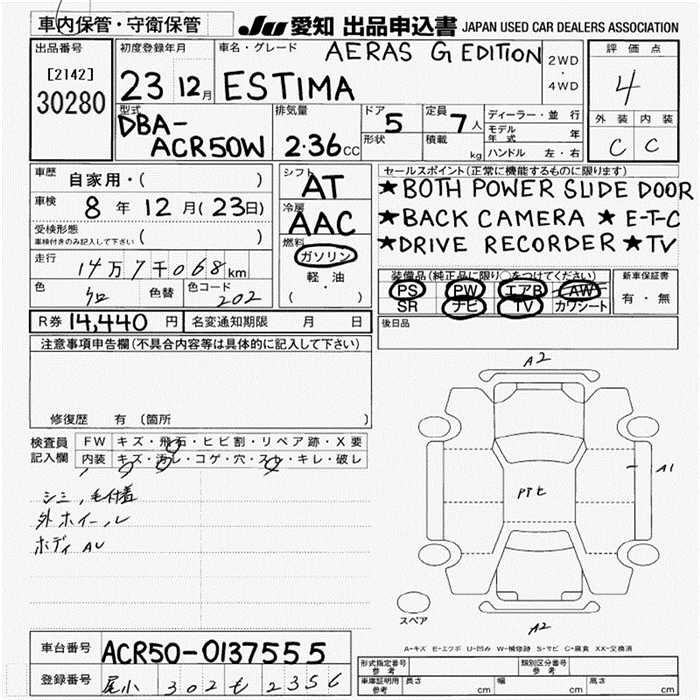 車内保管・守衛保管
JU 愛知 出品申込書 JAPAN USED CAR DEALERS ASSOCIATION
出品番号
[2142]
30280
初度登録年月
23 12月
車名・グレード
AERAS G EDITION
ESTIMA
2WD
・
4WD
評価点
4
外装 内装
C C
型式
DBA-
ACR50W
排気量
2.36cc
ドア 5
形状
定員 7人
積載 kg
ディーラー・並行
モデル年式 年
ハンドル 左・右
車歴 自家用・( )
車検 8年12月(23日)
受検形態
車検付きのみ記入して下さい ( )
走行
14万7千068km
色 クロ 色替 色コード 202
シフト
AT
冷房
AAC
燃料
ガソリン
軽・油
( ・ )
セールスポイント(正常に機能するものに限ります)
★BOTH POWER SLIDE DOOR
★BACK CAMERA ★ E-T-C
★DRIVE RECORDER ★TV
装備品(純正品に限り○をつけてください)
PS PW エアB AW
SR ナビ TV カワシート
新車保証書
有・無
後日品
R券 14,440 円 名変通知期限 月 日
注意事項申告欄(不具合内容等は具体的に記入して下さい)
修復歴 有(箇所 )
検査員
記入欄
FW キズ・飛石・ヒビ割・リペア跡・X要
内装 キズ・汚レ・コゲ・穴・スレ・キレ・破レ
シミ,毛付着
外ホイール
ボディAU
A2
A1
A2
スペア
A-キズ E-エクボ U-凹み W-補修跡 S-サビ C-腐食 XX-交換済
車台番号 ACR50-0137555
登録番号 尾小 302 も 2356
形式指定番号
参考
類別区分番号
参考
車庫証明用
参考
長さ cm 幅 cm 高さ cm